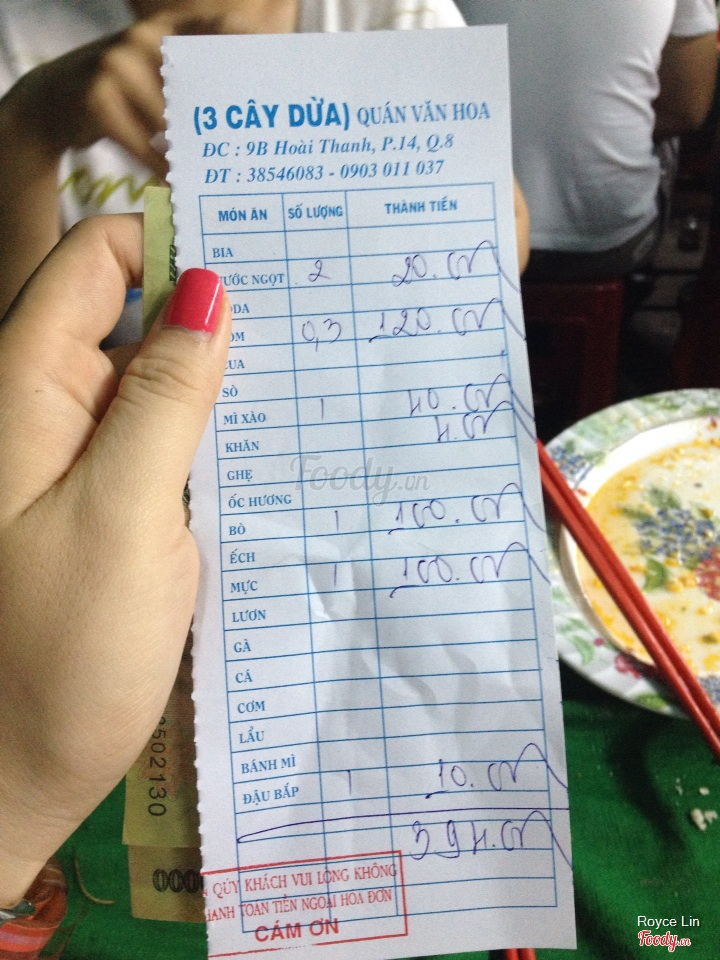 (3 CÂY DỪA) QUÁN VĂN HOA
ĐC : 9B Hoài Thanh, P.14, Q.8
ĐT : 38546083 - 0903 011 037
MÓN ĂN SỐ LƯỢNG THÀNH TIỀN
BIA
ƯỚC NGỌT 2 20.
ODA
ÔM 0,3 120.
CUA
SÒ
MÌ XÀO 1 40.
KHĂN 4.
GHẸ
ỐC HƯƠNG
BÒ 1 100.
ẾCH
MỰC 1 100.
LƯƠN
GÀ
CÁ
CƠM
LẨU
BÁNH MÌ
ĐẬU BẮP 1 10.
394.
QÚY KHÁCH VUI LÒNG KHÔNG
HANH TOÁN TIỀN NGOÀI HOA ĐƠN
CÁM ƠN
502130
000
Foody.vn
Royce Lin
Foody.vn